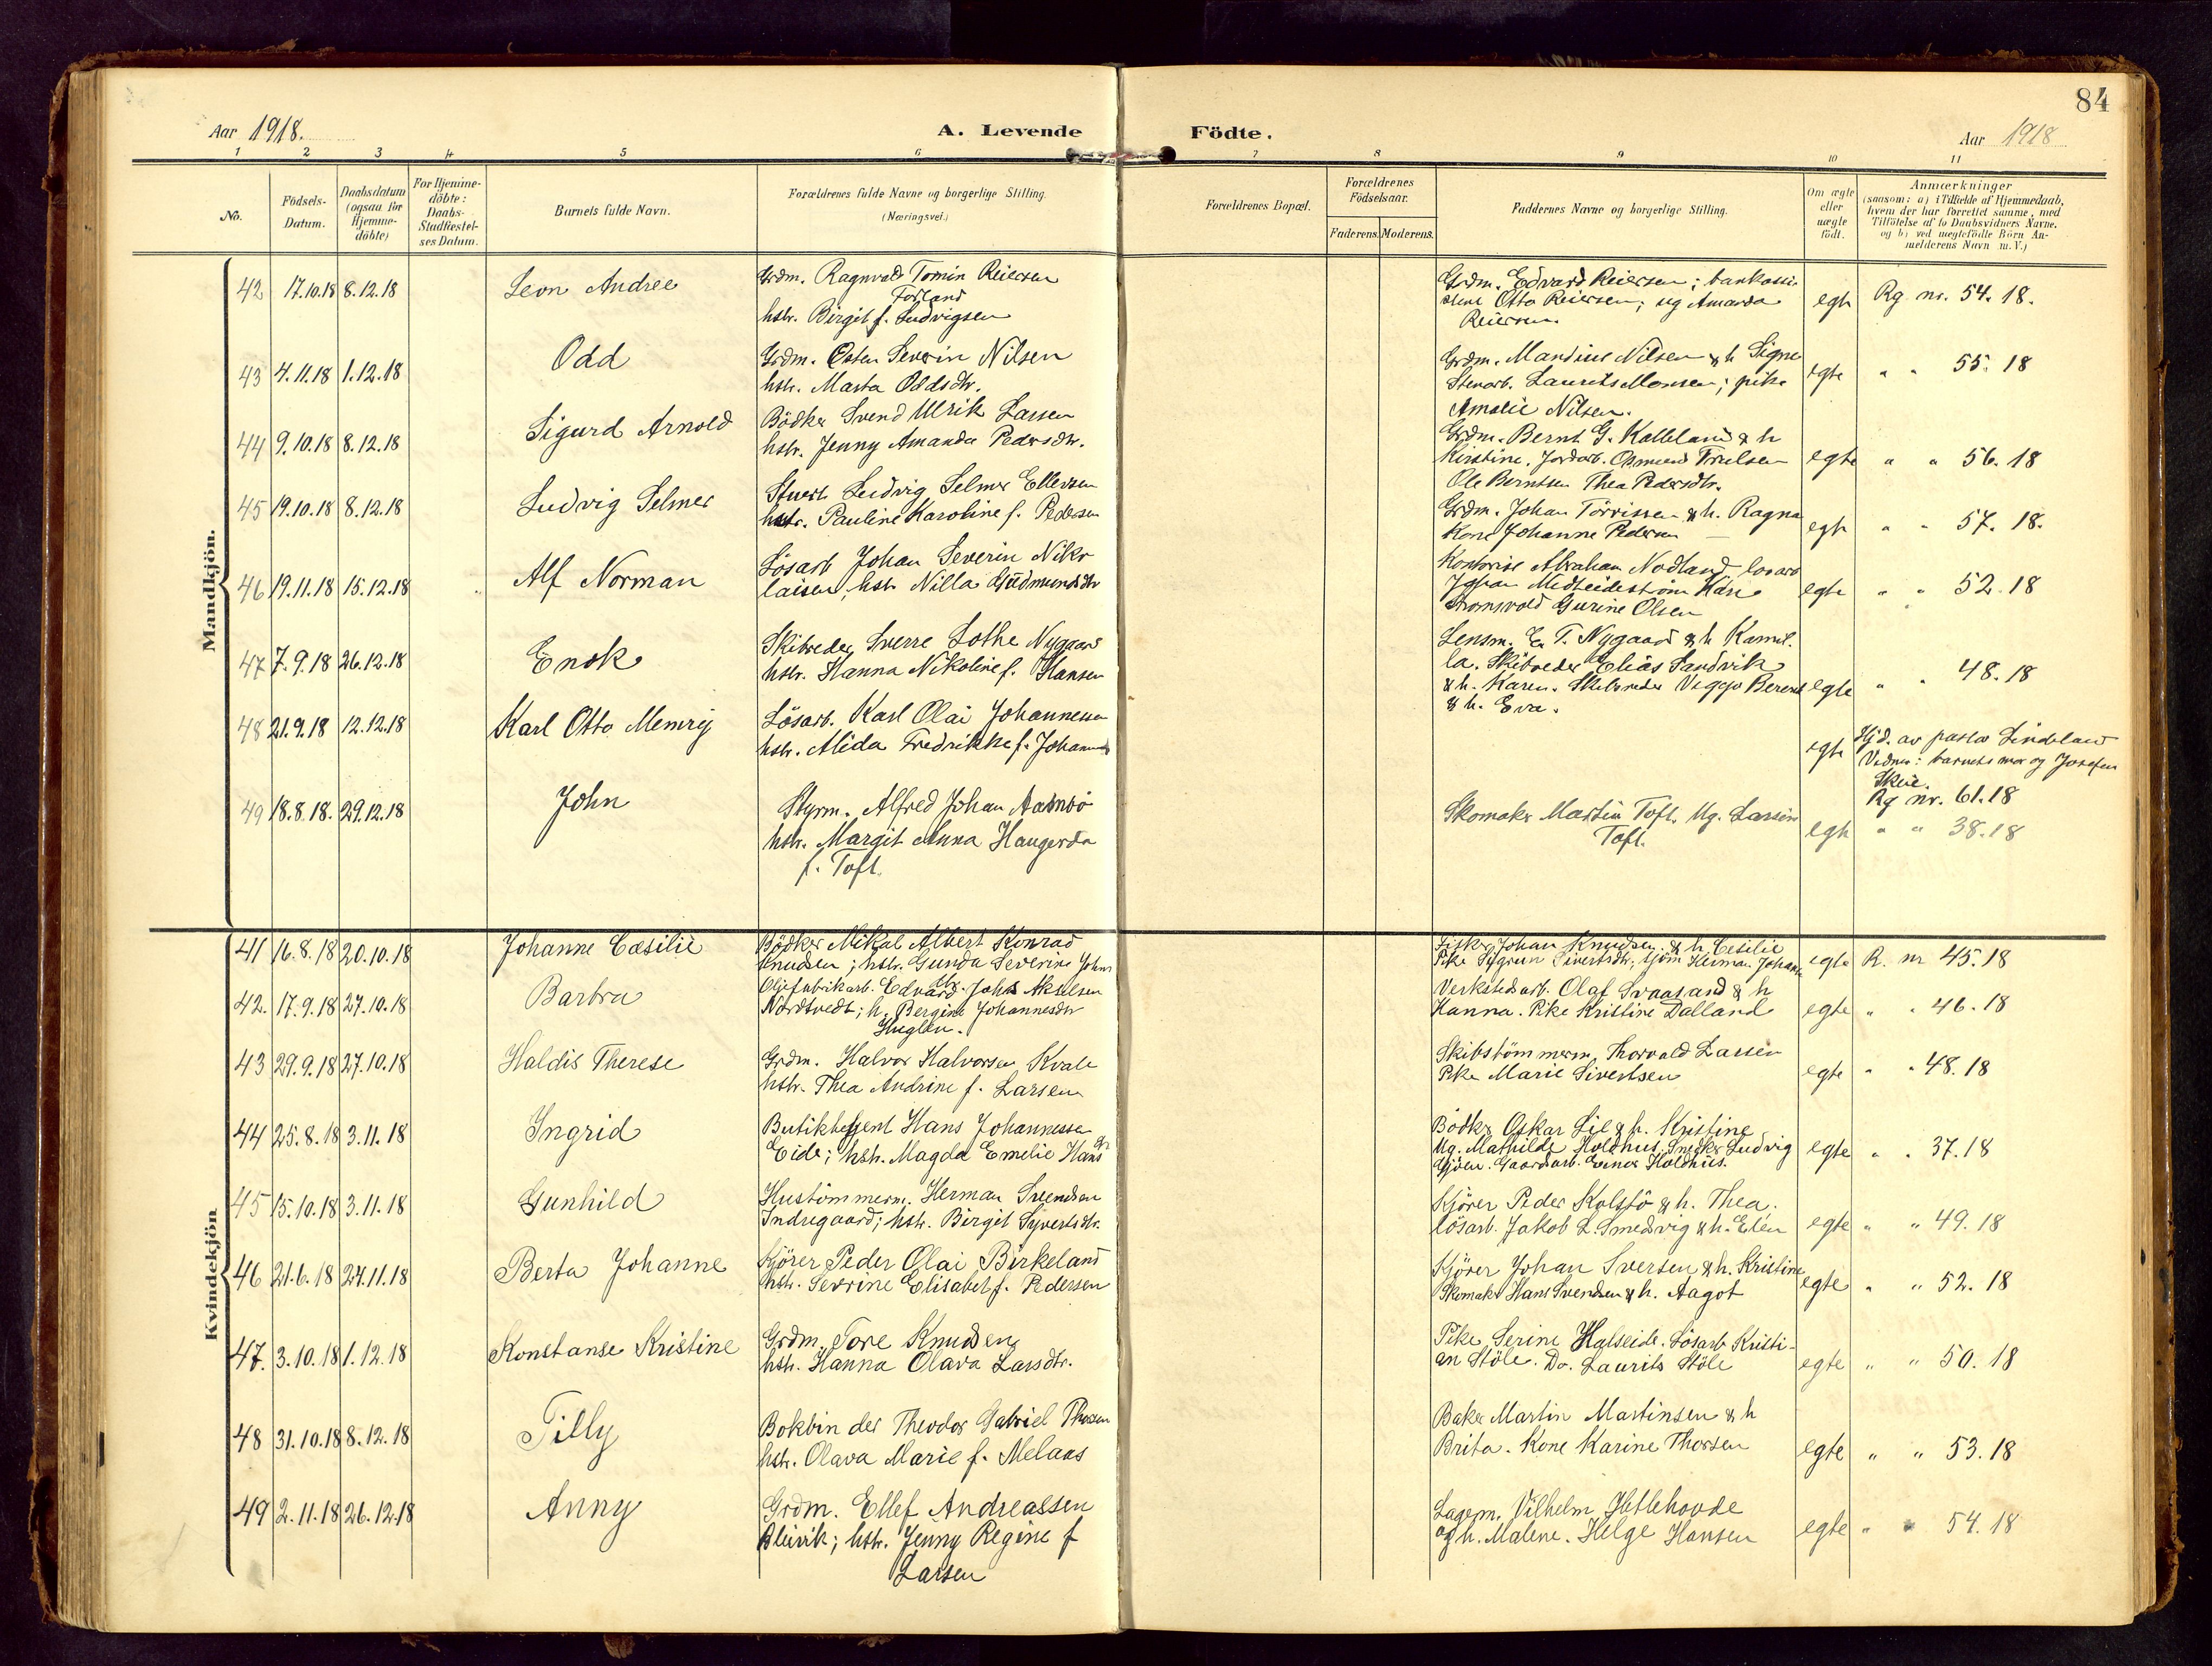 84
Aar 1918.
A. Levende
Födte.
Aar 1918
1 2 3 4 5 6 7 8 9 10 11
No.
Födsels-
Datum.
Daabsdatum
(ogsaa for
Hjemme-
döbte)
For Hjemme-
döbte:
Daabs-
Stadfæstel-
ses Datum.
Barnets fulde Navn.
Forældrenes fulde Navne og borgerlige Stilling.
(Næringsvei.)
Forældrenes Bopæl.
Forældrenes
Födselsaar.
Faderens. Moderens.
Faddernes Navne og borgerlige Stilling.
Om ægte
eller
uægte
födt.
Anmærkninger
(saasom: a) i Tilfælde af Hjemmedaab,
hvem der har forrettet samme, med
Tilföielse af to Daabsvidners Navne,
og b) ved uægtefödte Börn An-
melderens Navn m. V.)
Mandkjön.
42 17.10.18 8.12.18 Leon Andree
Grdm. Ragnvald Tomin Reiersen
Forland
hstr. Birgit f. Ludvigsen
Grdm. Edvard Reiersen;
Otto Reiersen; ug Amanda
Reiersen.
egte Rg. nr. 54. 18.
43 4.11.18 1.12.18 Odd
Grdm. Osten Severin Nilsen
hstr. Marta Oddsdtr.
Grdm. Mandius Nilsen & h Signe
Stenarb. Laurits Monsen; pike
Amalie Nilsen.
egte " " 55. 18
44 9.10.18 8.12.18 Sigurd Arnold
Bödker Svend Ulrik Larsen
hstr. Jenny Amanda Pedersdtr.
Grdm. Bernt G. Kalleland & h
Kirstine. Jordarb. Osmund Trulsen
Ole Berntsen Thea Pedersdtr.
egte " " 56. 18
45 19.10.18 8.12.18 Ludvig Selmer
Stuert Ludvig Selmer Ellersen
hstr. Pauline Karoline f. Pedersen
Grdm. Johan Törrissen & h. Ragna
Kone Johanne Pedersen
egte " " 57. 18.
46 19.11.18 15.12.18 Alf Norman
Lösarb Johan Severin Niko
laisen, hstr Nilla Gudmundsdtr
Abraham Nodland losarb
Gurine Olsen
egte " " 52. 18
47 7.9.18 26.12.18 Enok
Skibreder Sverre Lothe Nygaard
hstr. Hanna Nikoline f. Hansen
Lensm. E. T. Nygaard & h Kamil.
la. Skibreder Elias Sandvik
& h. Karen. Skibsreder Viggo Berent
& h. Eva.
egte " " 48. 18
48 21.9.18 12.12.18 Karl Otto Memrij
Lösarb. Karl Olai Johannesen
hstr. Alida Fredrikke f. Johannes
egte Hjd. av pastor Lindeland
Vidner: barnets mor og Josefen
Skeie.
Rg nr. 61. 18
49 18.8.18. 29.12.18 John
Styrm. Alfred Johan Aamsö
hstr. Margit Anna Haugerda
f. Toft.
Skomaker Martin Toft. Ug. Larsine
Toft.
egte " " 38. 18
Kvindekjön
41 16.8.18 20.10.18 Johanne Cæsilie
Bödker Mikal Albert Konrad
Knudsen; hstr. Gunda Severine Johns
dtr.
Fisker Johan Knudsen & h. Cesilie
Pike Sigrun Sivertsdtr; sjöm Herman Johann
egte R. nr 45. 18
42. 17.9.18 27.10.18 Barbra
Oljefabrikarb. Edvard Johs Akselsen
Nordtvedt; h. Bergine Johannesdtr
Huglen.
Verkstedsarb. Olaf Svaasand & h
Hanna. Pike Kristine Dalland
egte " " 46. 18
43 29.9.18 27.10.18 Haldis Therese
Grdm. Halvor Halvorsen Kvale
hstr. Thea Andrine f. Larsen
Skibstömmerm. Thorvald Larsen
Pike Marie Sivertsen
egte " " 48. 18
44 25.8.18 3.11.18 Ingrid
Butikbetjent Hans Johannessen
Eide; hstr. Magda Emelie Hansdtr
Bödker Oskar Lie & h. Kristine
Ug. Mathilde Holdhus. Snedker Ludvig
Gjöen. Gaardsarb. Enok Holdhus.
egte " " 37. 18
45 15.10.18 3.11.18 Gunhild
Hustömmerm. Herman Svendsen
Indregaard; hstr. Birgit Syvertsdtr.
Kjörer Peder Kolstö & h. Thea.
lösarb. Jakob L. Smedvig & h. Elen
egte " " 49. 18
46 21.6.18 24.11.18 Berta Johanne
Kjörer Peder Olai Birkeland
hstr. Sevrine Elisabet f. Pedersen
Kjörer Johan Iversen & h. Kristine
Skomaker Hans Svendsen & h. Aagot
egte " " 52. 18
47. 3.10.18 1.12.18 Konstanse Kristine
Grdm. Tore Knudsen
hstr. Hanna Olava Larsdtr.
Pike Serine Halseide. Lösarb Kristi-
an Stöle. Do. Laurits Stöle
egte " " 50. 18
48 31.10.18 8.12.18 Tilly
Bokbinder Theodor Gabriel Thorsen
hstr. Olava Marie f. Melaas
Baker Martin Martinsen & h
Brita. Kone Karine Thorsen
egte " " 53. 18
49 2.11.18 26.12.18 Anny
Grdm. Ellef Andreassen
Bleivik; hstr. Jenny Regine f
Larsen
Lagerm. Vilhelm Hetlehovde
og h. Malene. Helge Hansen
egte " " 54. 18